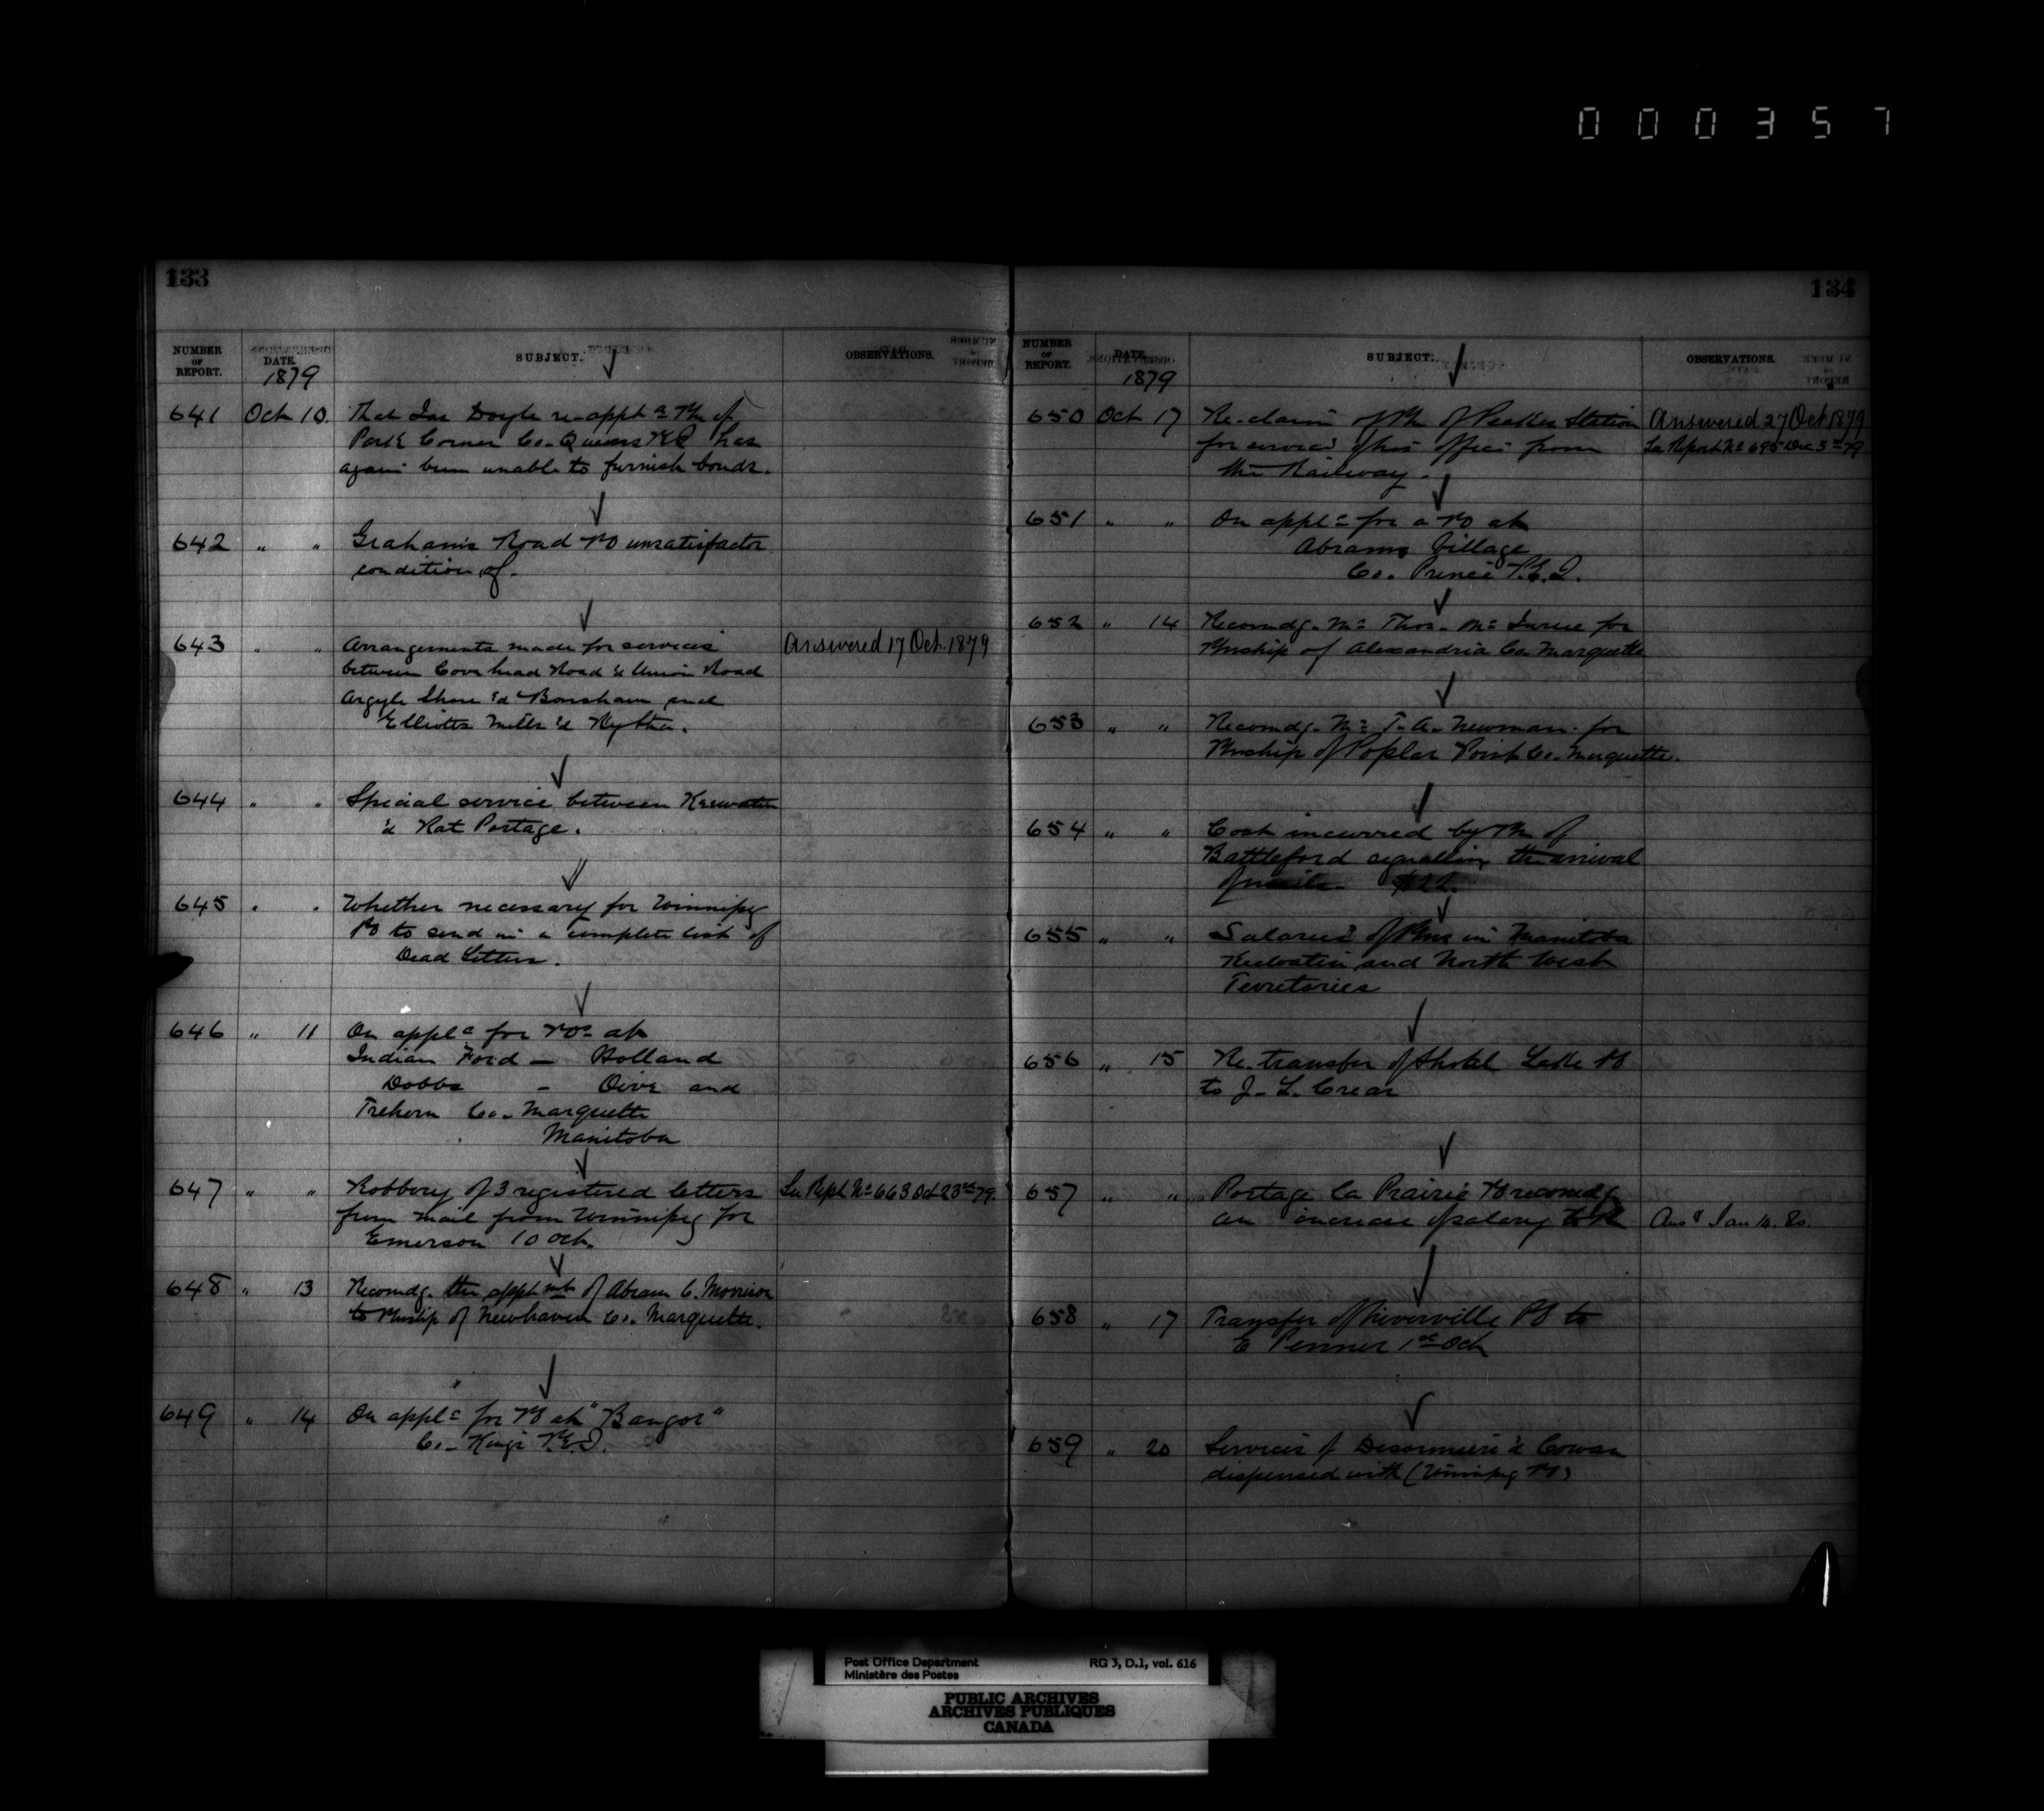 000357
133
NUMBER OF REPORT.
DATE.
SUBJECT.
OBSERVATIONS.
1879
641 Oct 10. That Jas Doyle re-appt as PM of
Park Corner Co. Queens PEI has
again been unable to furnish bonds.
642 " " Graham's Road PO unsatisfactor
condition of.
643 " " Arrangements made for services Answered 17 Oct. 1879
between Covehead Road & Union Road
Argyle Shore & Bonshaw and
Elliotts Mills &
644 " " Special service between Keewatin
& Rat Portage.
645 " " Whether necessary for Winnipeg
PO to send in a complete list of
Dead Letters.
646 " 11 On applc for POs at
Indian Ford — Holland
Dobbs - Oive and
Trehern Co. Marquette
Manitoba
647 " " Robbery of 3 registered letters See Rept No 663 Oct 23rd 79.
from mail from Winnipeg for
Emerson 10 Oct.
648 " 13 Recomdg. the apptmt of Abram C. Morrison
to Pmship of Newhaven Co. Marquette.
649 " 14 On applc for PO at "Bangor"
Co- Kings P.E.I.
134
NUMBER OF REPORT.
DATE.
SUBJECT.
OBSERVATIONS.
1879
650 Oct 17 Re-claim of PM of Peakes Station Answered 27 Oct 1879
for services of his office from See Report No 695 Dec 3rd 79
the Railway.
651 " " On applc for a PO at
Abrams Village
Co. Prince P.E.I.
652 " 14 Recomdg. Mr Thos. for
Pmship of Alexandria Co. Marquette
653 " " Recomdg. Mr T. A. Newman for
Pmship of Poplar Point Co. Marquette.
654 " " Cost incurred by PM of
Battleford signalling the arrival
of mails. $22.
655 " " Salaries of Pms in Manitoba
Keewatin and North West
Territories
656 " 15 Re. transfer of Shoal Lake PO
to J. L. Crear
657 " " Portage la Prairie PO recomdg
an increase of salary to PM Ansd Jan 10. 80.
658 " 17 Transfer of Niverville PO to
E Penner 1st Oct
659 " 20 Services of & Cowan
dispensed with (Winnipeg PO)
Post Office Department
Ministère des Postes
RG 3, D.1, vol. 616
PUBLIC ARCHIVES
ARCHIVES PUBLIQUES
CANADA